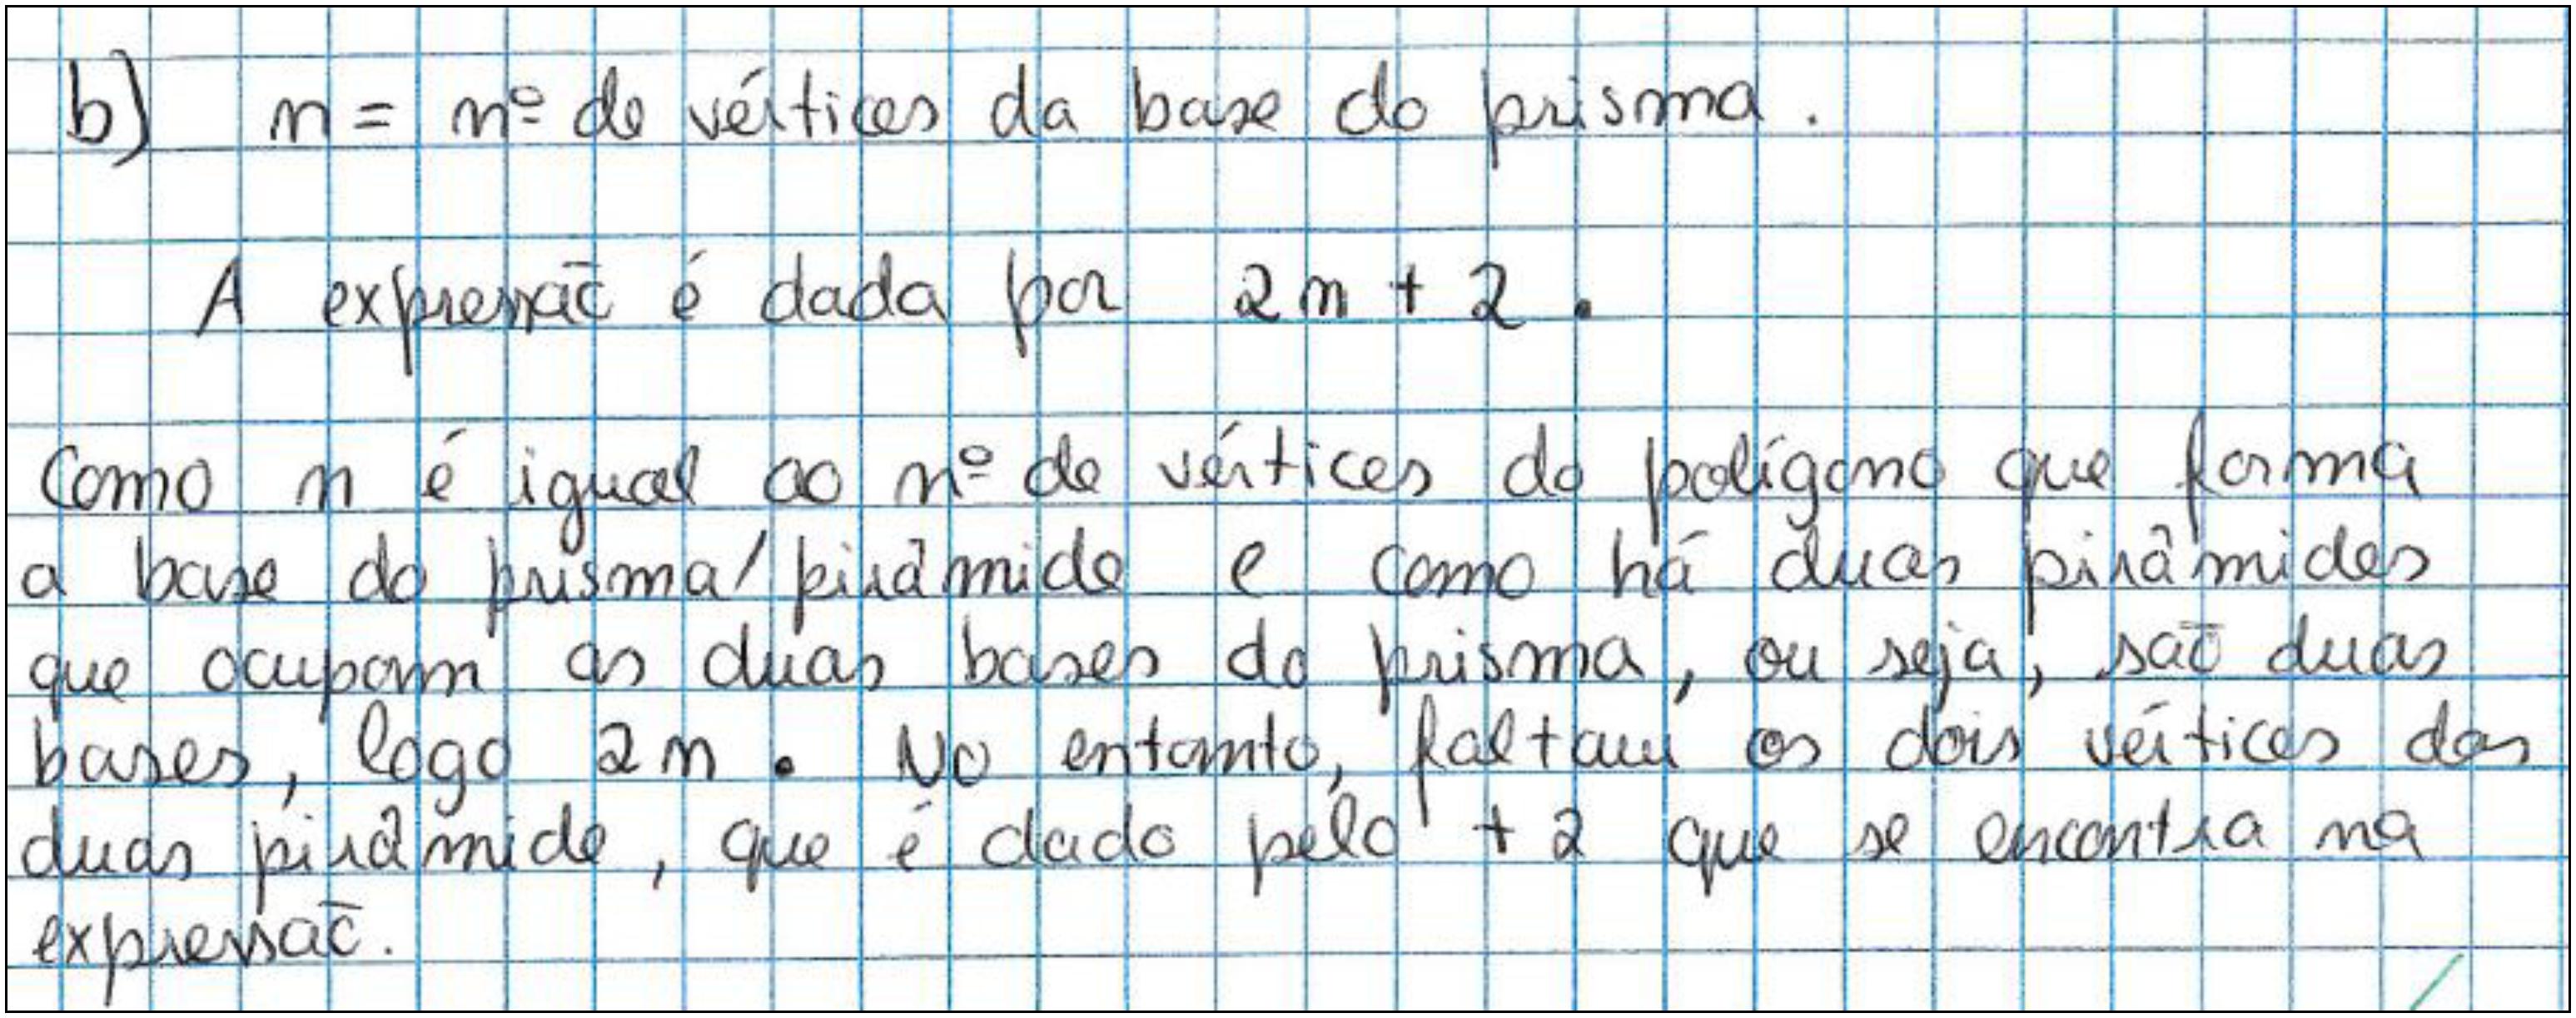 b) n = nº de vértices da base do prisma.
A expressão é dada por 2n + 2.
Como n é igual ao nº de vértices do polígono que forma
a base do prisma/pirâmide e como há duas pirâmides
que ocupam as duas bases do prisma, ou seja, são duas
bases, logo 2n. No entanto, faltam os dois vértices das
duas pirâmide, que é dado pelo +2 que se encontra na
expressão.